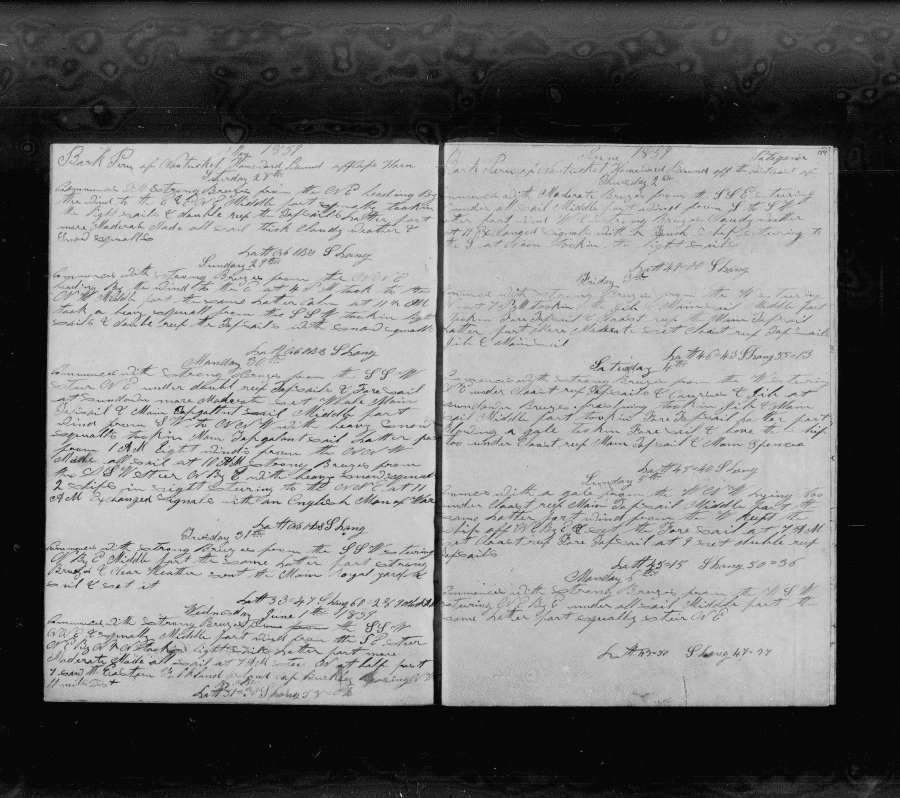 May 1859
Bark Peru of Nantucket Homeward Bound off Cape Horn
Saturday 28th
Commences with Strong Breezes from the N E heading By
the wind to the E & S E Middle part squally took in
the light sails & double reef the Topsails Latter part
more Moderate Made all sail thick cloudy weather &
Snow squalls
Latt Long
Sunday 29th
Commences with Strong Breezes from the N N E
heading By the wind to the E at 4 P M tack to the
N W Middle part the same Latter calm at 11 A M
took a heavy squall from the S S W took in light
sails & double reef the Topsails with snow squalls
Latt Long
Monday 30th
Commences with Strong Breezes from the S S W
steer N E under double reef Topsails & Foresail
at sundown more Moderate set Whole Main
Topsail & Main Topgallant sail Middle part
wind from S W to N W with heavy snow
squalls took in Main Topgallant sail Latter part
from 1 A M light winds from the N N W
Made all sail at 10 A M strong Breezes from
the S S W steer N By E with heavy snow squalls
2 ships in sight steering to the N N E at 11
A M Exchanged signals with an English Man of War
Latt Long
Tuesday 31st
Commences with Strong Breezes from the S S W steering
N By E Middle part the same Latter part strong
Breezes & clear weather sent the Main Royal yard &
sail & set it
Latt 53-47 Long 60-28
Wednesday June 1st 1859
Commences with Strong Breezes from the S S W
N N E & squally Middle part wind from the S E steer
N E By N took in light sails Latter part more
Moderate Made all sail at 7 A M steer N at half past
7 saw the Eastern Falkland Island
miles Dist
Latt 51-30 Long
June 1859
Bark Peru of Nantucket Homeward Bound off the coast of Patagonia
Thursday 2nd
Commences with Moderate Breezes from the S S E steering
under all sail Middle part wind from S to S W
Latter part wind W Strong Breezes Cloudy weather
at 11 Exchanged signals with Ship steering to
the S at Noon took in the light sails
Latt Long
Friday 3rd
Commences with Strong Breezes from the W steering
at 7 P M took in Jib & Mainsail Middle part
took in Fore Topsail & Closest reef the Main Topsail
Latter part More Moderate set Closest reef Topsails
Jib & Mainsail
Latt 46-43 Long 55-13
Saturday 4th
Commences with Strong Breezes from the W steering
N E under Closest reef Topsails & Courses & Jib at
sundown Breezes freshening took in Jib & Main
sail Middle part took in Fore Topsail Latter part
Blowing a gale took in Fore sail & hove the ship
too under Closest reef Main Topsail & Main Spencer
Latt 45-40 Long
Sunday 5th
Commences with a gale from the W S W Lying too
under Closest reef Main Topsail Middle part the
same Latter part wind from the W Kept the
ship off N E By E & set the Fore sail at 7 A M
set Closest reef Fore Topsail at 9 set double reef
Topsails
Latt 45-15 Long 50-36
Monday 6th
Commences with Strong Breezes from the W S W
steering N E By E under all sail Middle part the
same Latter part squally steer N E
Latt 43-30 Long 47-37